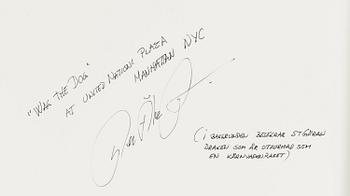 "WAG THE DOG"
AT UNITED NATIONS PLAZA
MANHATTAN NYC
(I BAKGRUNDEN BESEGRAR ST GÖRAN
DRAKEN SOM ÄR UTFORMAD SOM
EN KÄRNVAPENRAKET)